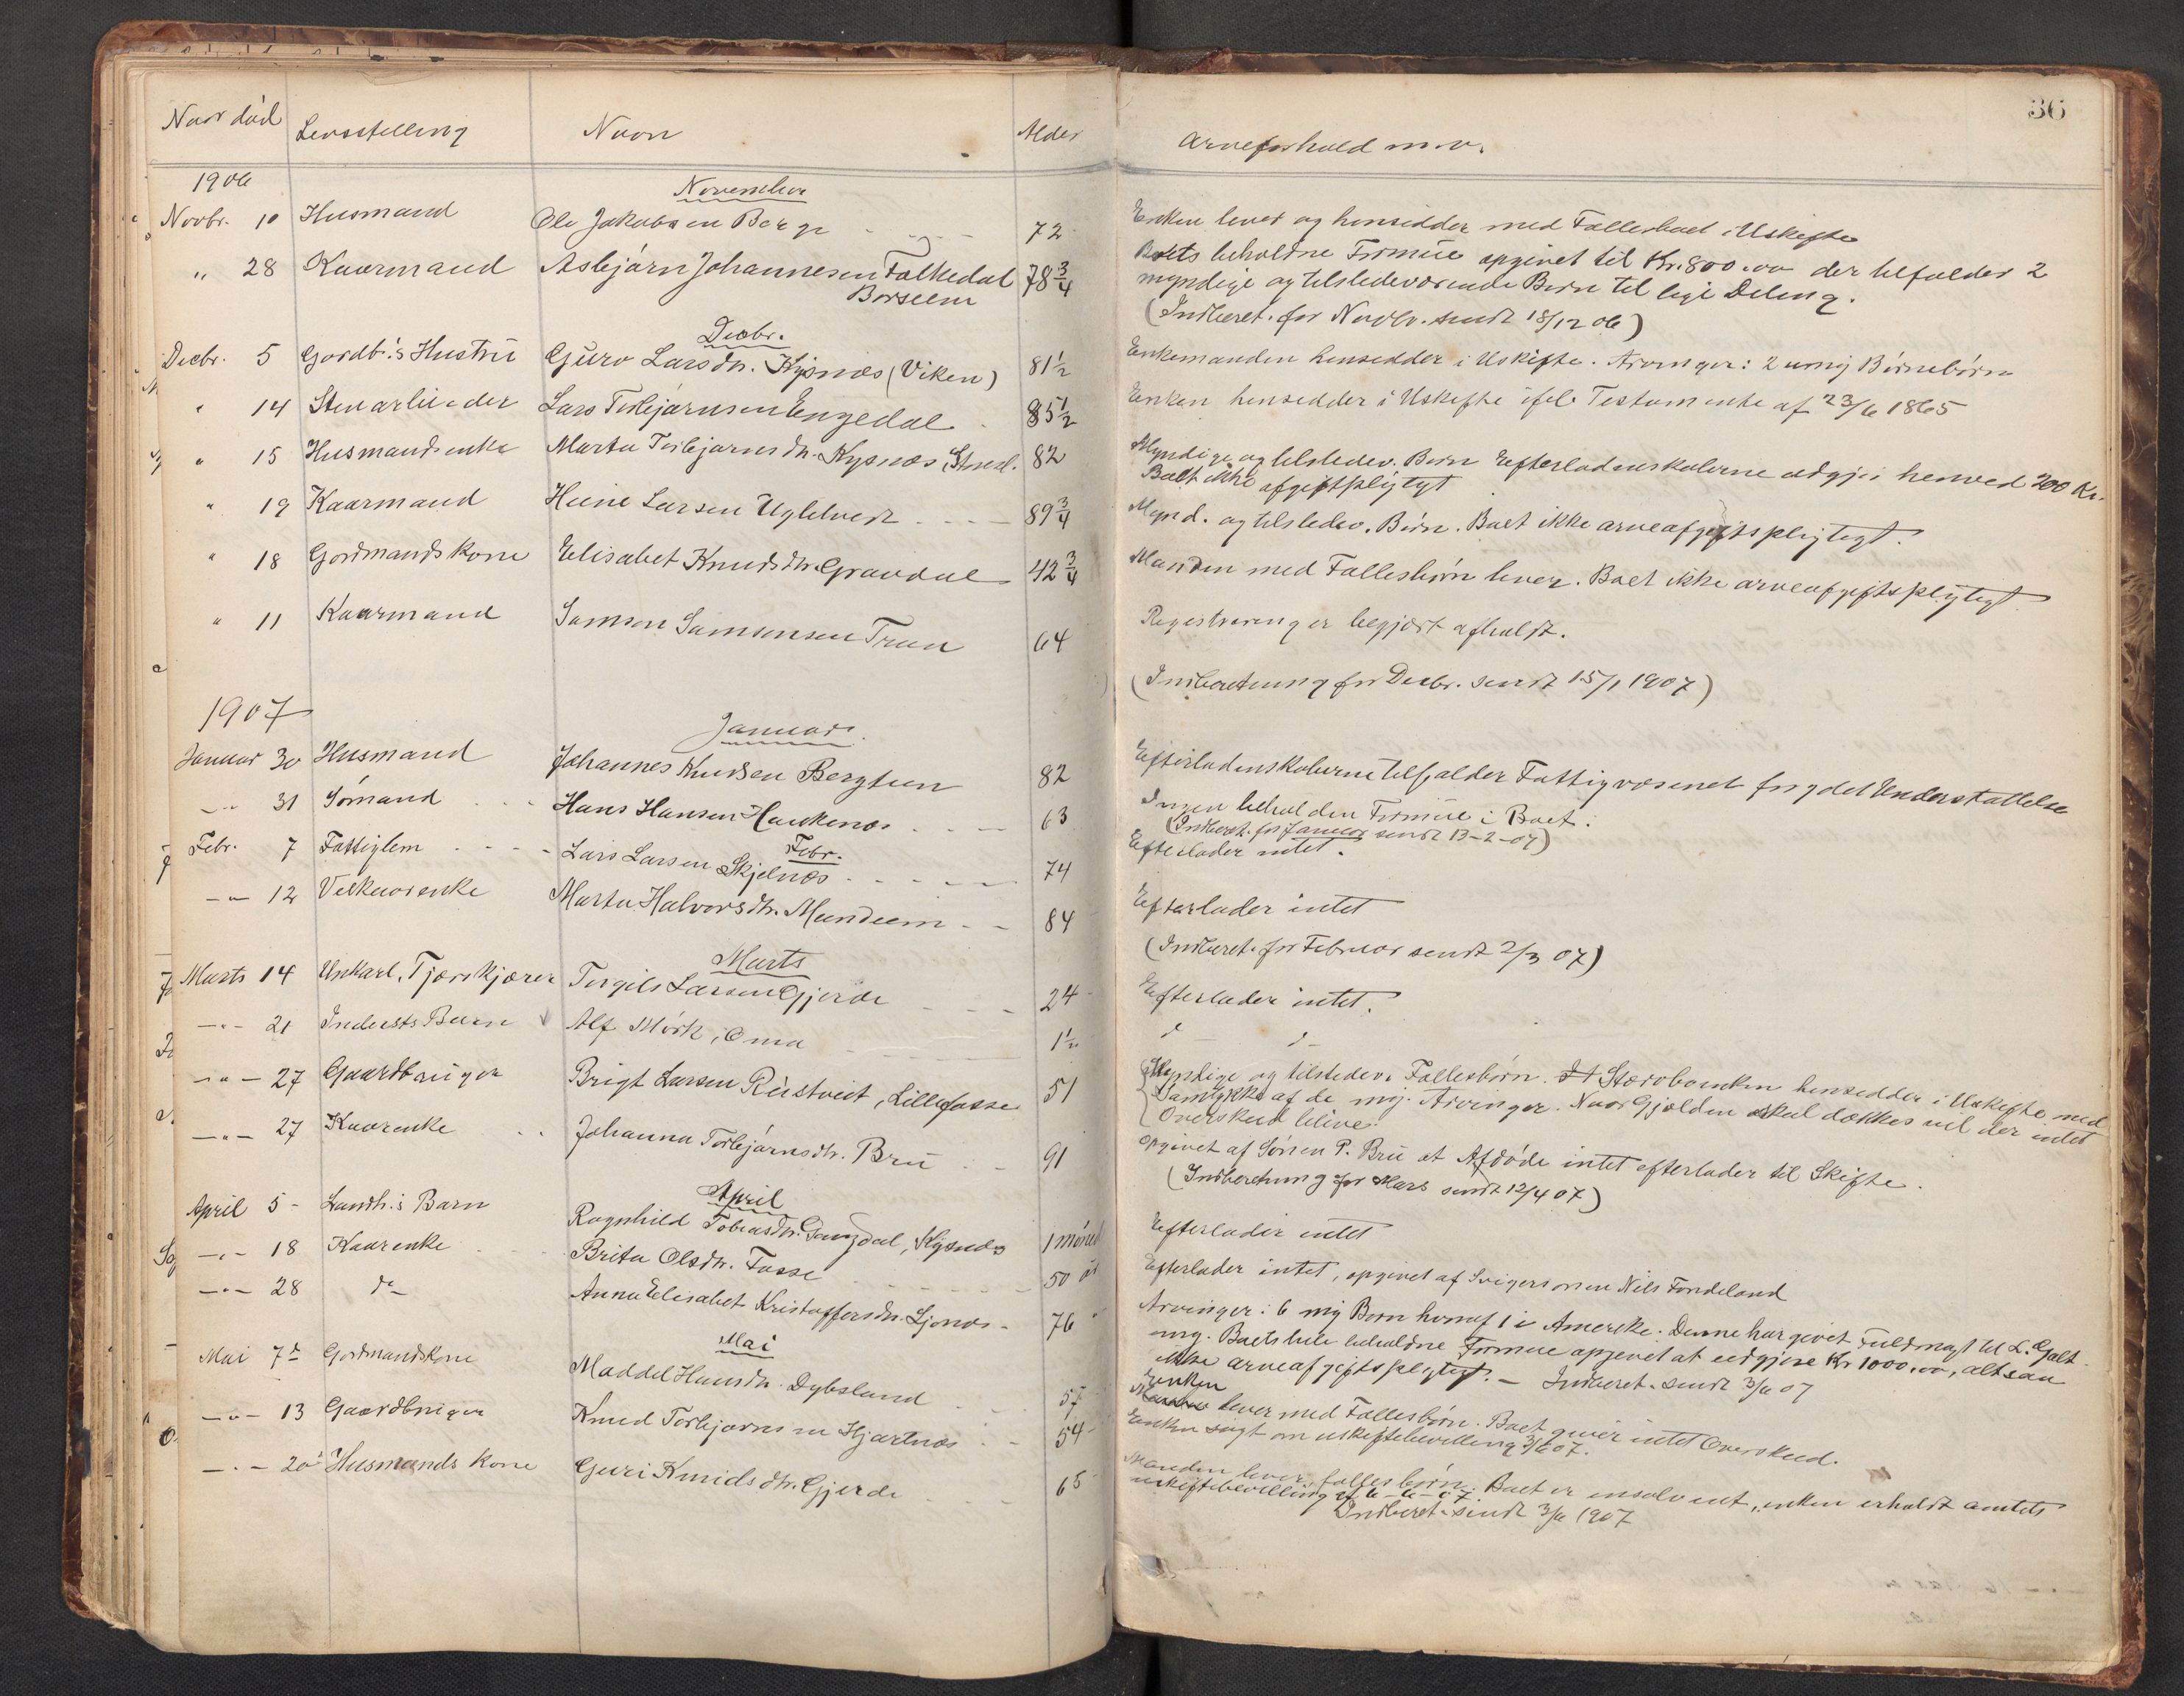 36
Naar död Livsstilling Navn Alder Arveforhold m.v.
1906
November
Novbr. 10 Husmand Ole Jakobsen Berge 72 Enken lever og hensidder med Fællesboet i Uskifte
" 28 Kaarmand Asbjørn Johannesen Folkedal 78 3/4 Boets beholdne Formue opgivet til Kr. 800.00 der tilfalder 2
Børseim myndige og tilstedeværende Børn til lige Deling.
(Indberet. for Novbr. sendt 18/12 06)
Decbr.
Decbr. 5 Gardb.s Hustru Guro Larsdtr. Kysnæs (Viken) 81 1/2 Enkemanden hensedder i Uskifte. Arvinger: 2 umy Børnebørn
" 14 Stenarbeider Lars Torbjørnsen Engedal 85 1/2 Enken hensedder i Uskifte ifølg Testamente af 23/6 1865
" 15 Husmandsenke Marta Torbjørnsdtr. Kysnæs, 82 Myndige og tilstedev. Børn Efterladenskaberne udgjør henved 200 Kr.
Boet ikke afgiftspligtigt
" 19 Kaarmand Heine Larsen Uglelvedt 89 3/4 Mynd. og tilstedev. Børn. Boet ikke arveafgiftspligtigt.
" 18 Gardmandskone Elisabet Knudsdtr. Gravdal 42 3/4 Manden med Fællesbørn lever. Boet ikke arveafgiftspligtigt.
" 11 Kaarmand Samson Samsonsen Træn 64 Registrering er begjært afholdt.
(Indberetning for Decbr. sendt 15/1 1907)
1907
Januar
Januar 30 Husmand Johannes Knudsen Bergtun 82 Efterladenskaberne tilfalder Fattigvæsenet for ydet Understøttelse
" 31 Sømand Hans Hansen Haukenæs 63 Ingen beholden Formue i Boet.
(Indberet. for Januar sendt 13-2-07)
Febr.
Febr. 7 Fattiglem Lars Larsen Skjelnæs 74 Efterlader intet.
" 12 Veikaarenke Marta Halvorsdtr. Mundeim 84 Efterlader intet
(Indberet. for Februar sendt 2/3 07)
Marts
Marts 14 Unkarl, Tjærekjører Torgils Larsen Gjerde 24 Efterlader intet.
" 21 Inderst's Barn Alf Mörk, Oma 1 1/2 d- d-
" 27 Gaardbruger Brigt Larsen Røistveit, Lillefosse 51 Myndige og tilstedev. Fællesbørn. Stervboenken hensedder i Uskifte med
Samtykke af de myg. Arvinger. Naar Gjælden skal dækkes vil der intet
Overskud blive.
" 27 Kaarenke Johanna Torbjørnsdtr. Bru 91 Opgivet af Sønnen P. Bru at Afdøde intet efterlader til Skifte.
(Indberetning for Mars sendt 12/4 07)
April
April 5 Landh.s Barn Ragnhild Tobiasdtr. Gangdal, Kysnæs 1 måned Efterlader intet
" 18 Kaarenke Brita Olsdtr. Fosse 50 år Efterlader intet, opgivet af Svigersønnen Nils Tondeland
" 28 do Anna Elisabet Kristoffersdtr. Ljonæs 76 " Arvinger: 6 myg Børn hvoraf 1 i Amerika. Denne har givet Fuldmagt til L. Galt
ung. Boets hele beholdne Formue opgivet at udgjøre Kr 1000.00, altsaa
ikke arveafgiftspligtigt. — Indberet. sendt 3/6 07
Mai
Mai 7de Gardmandskone Maddel Hansdtr. Dybsland 57 Enken
lever med Fællesbørn. Boet giver intet Overskud.
" 13 Gaardbruger Knud Torbjørnsen Hjartnæs 54 Enken søgt om uskiftebevilling 3/6 07.
" 20de Husmands kone Guri Knudsdtr. Gjerde 65 Manden lever, fælles børn. Boet er insolvent, enken erholdt amtets
uskiftebevilling af 6-6-07.
Indberet. sendt 3/6 1907